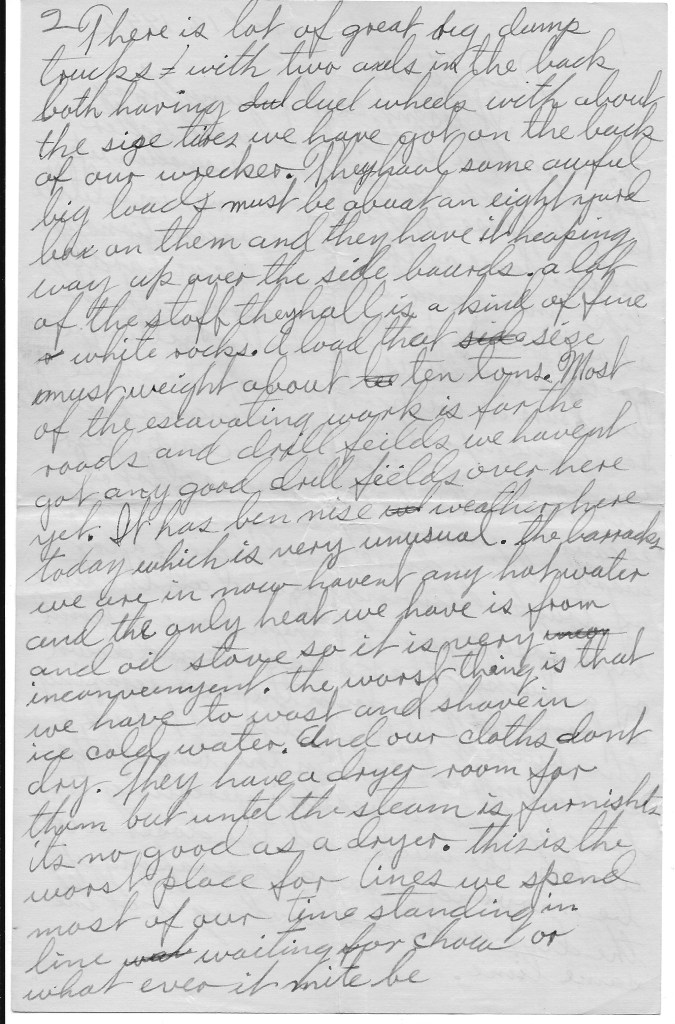 2 There is lot of great big dump
trucks with two axels in the back
both having dul duel wheels with about
the size tires we have got on the back
of our wrecker. They haul some awful
big loads must be about an eight yard
box on them and they have it heaping
way up over the side boards. a lot
of the stoff they hall is a kind of fine
white rocks. a load that side size
must weight about ten tons. Most
of the escavating work is for the
roads and drill feilds we havent
got any good drill fields over here
yet. It has ben nise weather here
today which is very unusual. the barracks
we are in now havent any hot water
and the only heat we have is from
and oil stove so it is very incon
inconveinyent. the worst thing is that
we have to wast and shave in
ice cold water. And our cloths dont
dry. They have a dryer room for
them but until the steam is furnishts
its no good as a dryer. this is the
worst place for lines we spend
most of our time standing in
line waiting for chow or
what ever it mite be